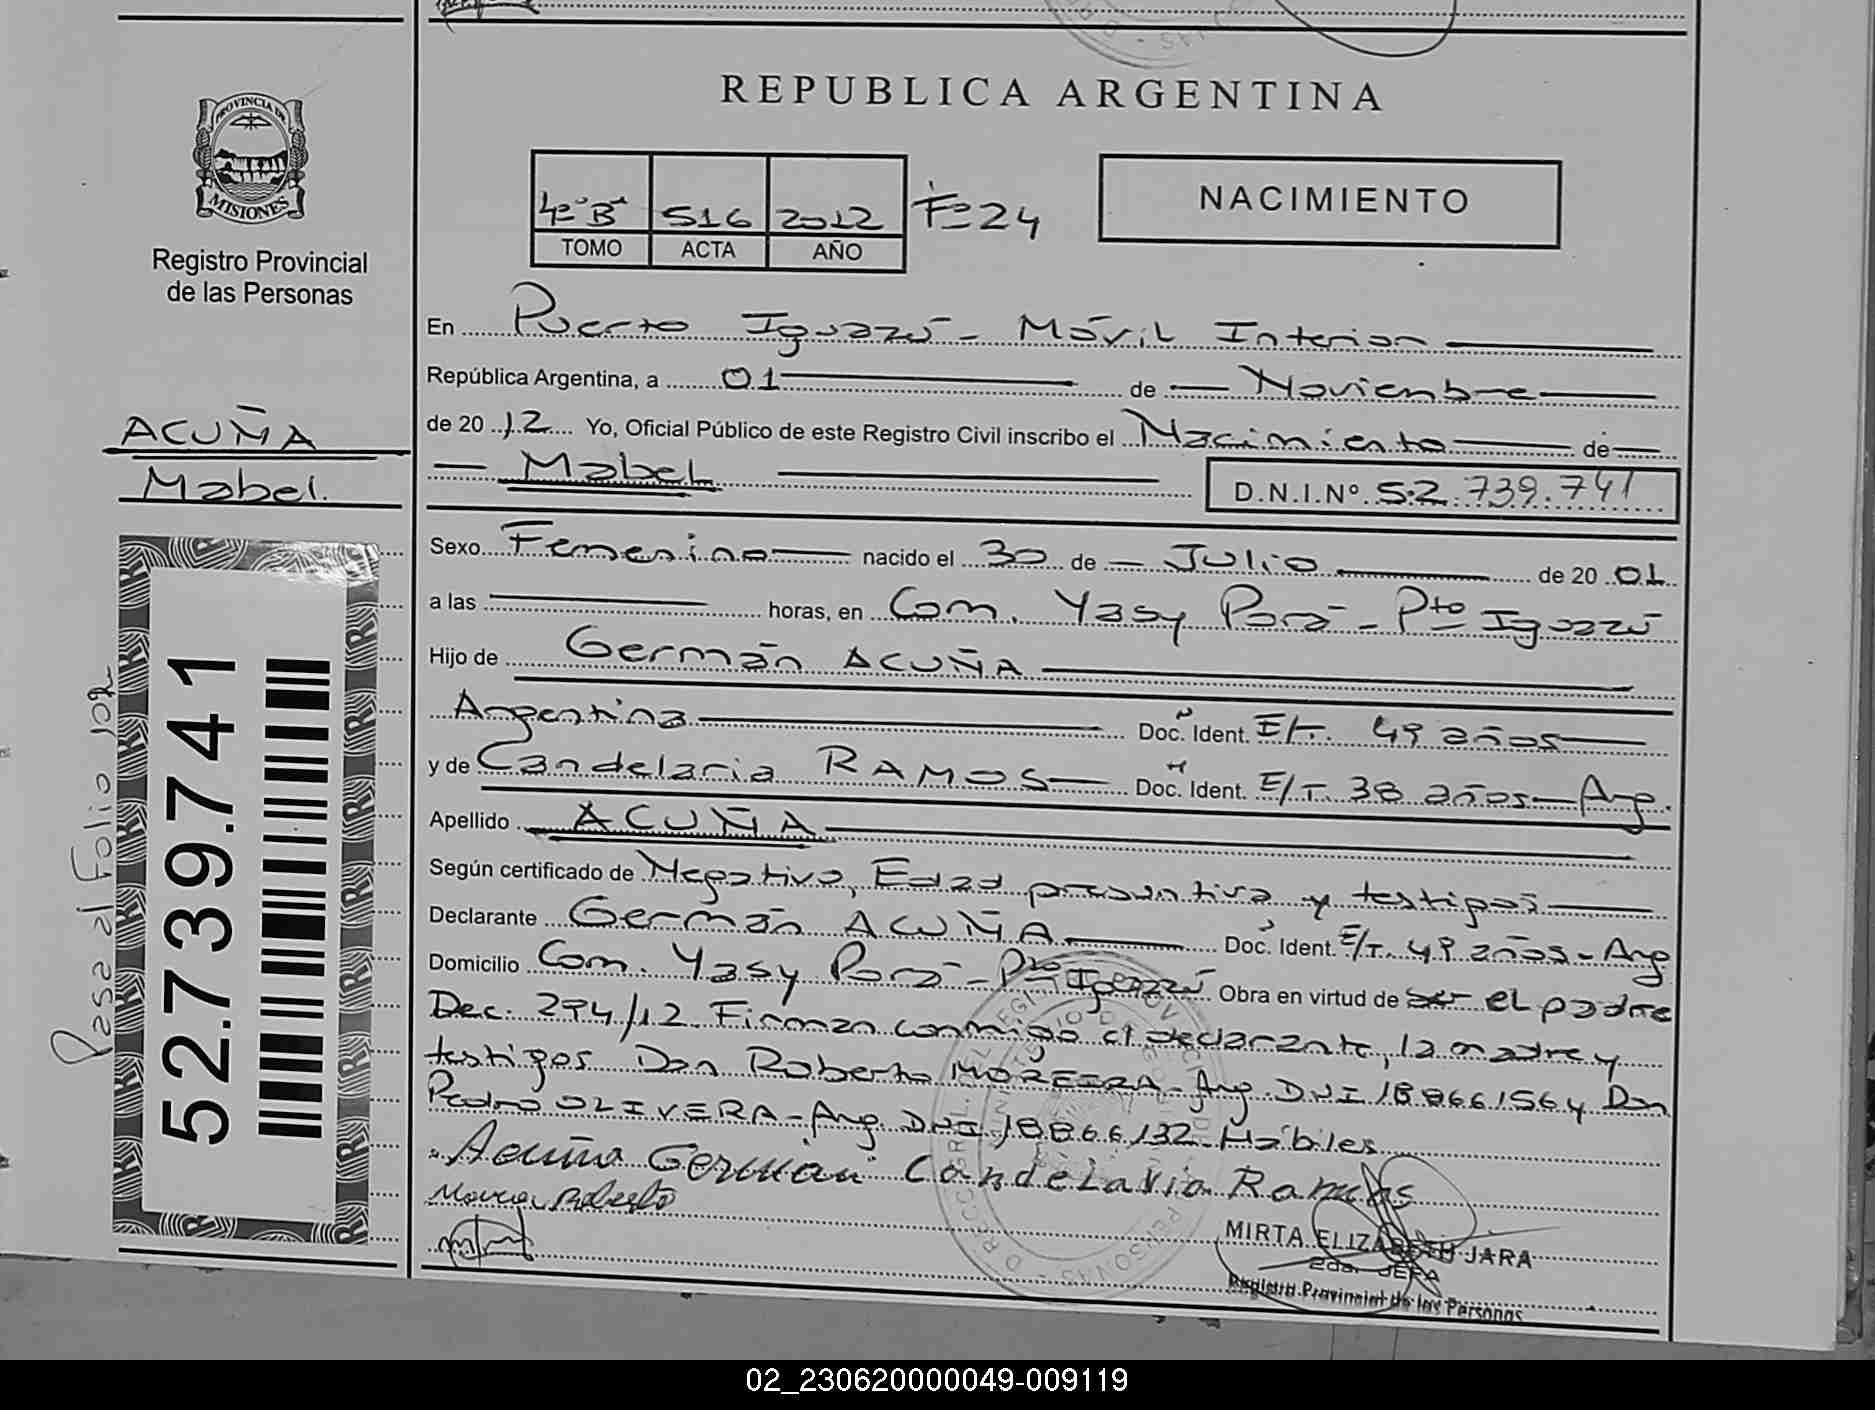 REPUBLICA ARGENTINA
PROVINCIA DE
MISIONES
Registro Provincial
de las Personas
4º "B" 516 2012 Fº 24
TOMO ACTA AÑO
NACIMIENTO
ACUÑA
Mabel.
52.739.741
Pasa al Folio 102
En Puerto Iguazú - Móvil Interior
República Argentina, a 01 de Noviembre
de 2012 Yo, Oficial Público de este Registro Civil inscribo el Nacimiento de
Mabel D.N.I.Nº 52.739.741
Sexo Femenino nacido el 30 de Julio de 2001
a las horas, en Com. Yasy Porá - Pto Iguazú
Hijo de Germán ACUÑA
Argentina Doc. Ident. E/T. 49 años
y de Candelaria RAMOS Doc. Ident. E/T. 38 años - Arg.
Apellido ACUÑA
Según certificado de Negativo, Edad presuntiva y testigos
Declarante Germán ACUÑA Doc. Ident. E/T. 49 años - Arg
Domicilio Com. Yasy Porá - Pto Iguazú Obra en virtud de ser el padre
Dec. 294/12 Firman conmigo el declarante, la madre y
testigos Don Roberto MOREIRA - Arg. DNI 18866156 y Don
Pedro OLIVERA - Arg. DNI 18866132 Hábiles
"Acuña Germán" Candelaria Ramos
Roberto
MIRTA ELIZABETH JARA
2da. JEFA
Registro Provincial de las Personas
02_230620000049-009119